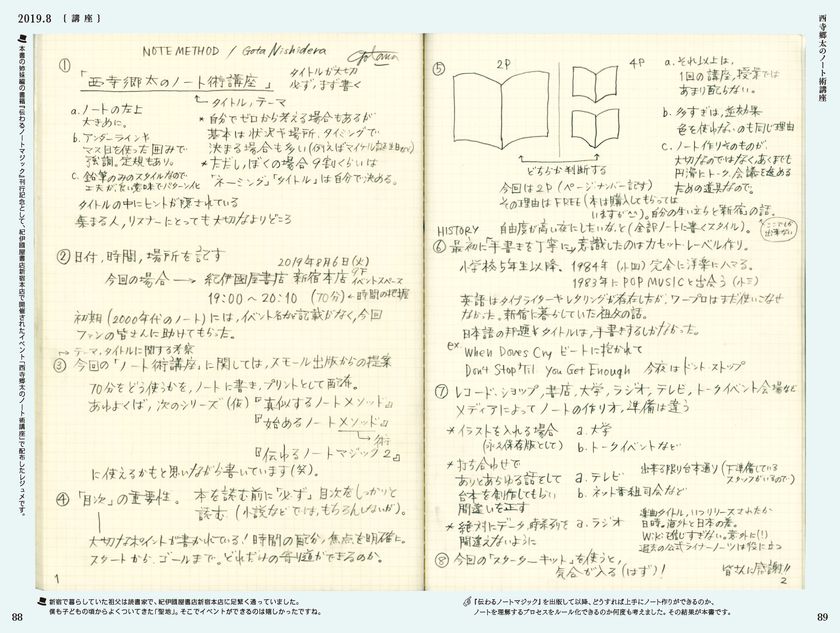 2019.8 〔講座〕
本書の姉妹編の書籍『伝わるノートマジック』刊行記念として、紀伊國屋書店新宿本店で開催されたイベント「西寺郷太のノート術講座」で配布したレジュメです。
NOTE METHOD / Gota Nishidera
①
「西寺郷太のノート術講座」
タイトルが大切
必ず、まず書く
タイトル、テーマ
a. ノートの左上
大きめに。
b. アンダーラインや
マス目を使った囲みで
強調。定規もあり。
c. 鉛筆のみのスタイルなので
* 自分でゼロから考える場合もあるが
基本は状況や場所、タイミングで
決まる場合も多い
* ただし、ぼくの場合9割くらいは
「ネーミング」「タイトル」は自分で決める。
タイトルの中にヒントが隠されている
集まる人、リスナーにとっても大切なよりどころ
② 日付、時間、場所を記す
2019年8月6日(火)
今回の場合→ 紀伊國屋書店 新宿本店 9F イベントスペース
19:00〜20:10 (70分) ←時間の把握
初期(2000年代のノート)には、イベント名が記載がなく、今回
ファンの皆さんに助けてもらった。
→テーマ、タイトルに関する考察
③ 今回の「ノート術講座」に関しては、スモール出版からの提案
70分をどう使うかを、ノートに書き、プリントとして配布。
あわよくば、次のシリーズ(仮)『真似するノートメソッド』
『始めるノートメソッド』
→術
『伝わるノートマジック2』
に使えるかもと思いながら書いています(笑)。
④ 「目次」の重要性。 本を読む前に「必ず」目次をしっかりと
読む。(小説などでは、もちろんしないが)。
大切なポイントが書かれている! 時間の配分、焦点を明確に。
スタートから、ゴールまで。どれだけの寄り道ができるのか。
1
88
新宿で暮らしていた祖父は読書家で、紀伊國屋書店新宿本店に足繁く通っていました。
僕も子どもの頃からよくついてきた「聖地」。そこでイベントができるのは嬉しかったですね。
西寺郷太のノート術講座
⑤
2P
4P
a. それ以上は、
1回の講座、授業では
あまり配らない。
b. 多すぎは、逆効果
色を使わないのも同じ理由
c. ノート作りそのものが、
大切なのではなく、あくまでも
円滑にトーク、会議を進める
ための道具なので。
どちらか判断する
今回は2P(ページナンバー記す)
その理由はFREE(本は購入してもらって
いますが)。自分の生い立ちと新宿の話。
自由度が高い夜にしたいな、と(全訳ノートに書くスタイル)。
ここでしか
出来ない
HISTORY
⑥ 最初に「手書きを丁寧に」意識したのはカセット・レーベル作り。
小学校5年生以降、1984年(小四)完全に洋楽にハマる。
1983年にPOP MUSICと出会う(小三)
英語はタイプライターやレタリングが存在したが、ワープロはまだ使いこなせ
なかった。新宿に暮らしていた祖父の話。
日本語の邦題やタイトルは、手書きするしかなかった。
ex. When Doves Cry ビートに抱かれて
Don't Stop 'Til You Get Enough 今夜はドント・ストップ
⑦ レコード・ショップ、書店、大学、ラジオ、テレビ、トークイベント会場など
メディアによってノートの作り方、準備は違う
* イラストを入れる場合
(永久保存版として)
a. 大学
b. トークイベントなど
* 打ち合わせで
ありとあらゆる話をして
台本を制作してもらい
間違いを正す
a. テレビ
b. ネット番組司会など
出来る限り台本通り(下準備している
スタッフがいるので)
* 絶対にデータ、時系列を
間違えないように
a. ラジオ
楽曲タイトル、いつリリースされたか
日時。海外と日本の差。
Wikiを信じすぎない。意外に(!)
過去の公式ライナーノーツは役に立つ
⑧ 今回の「スターターキット」を使うと、
気合が入る(はず)!
皆さんに感謝!!
2
『伝わるノートマジック』を出版して以降、どうすれば上手にノート作りができるのか、
ノートを理解するプロセスをルール化できるのか何度も考えました。その結果が本書です。
89